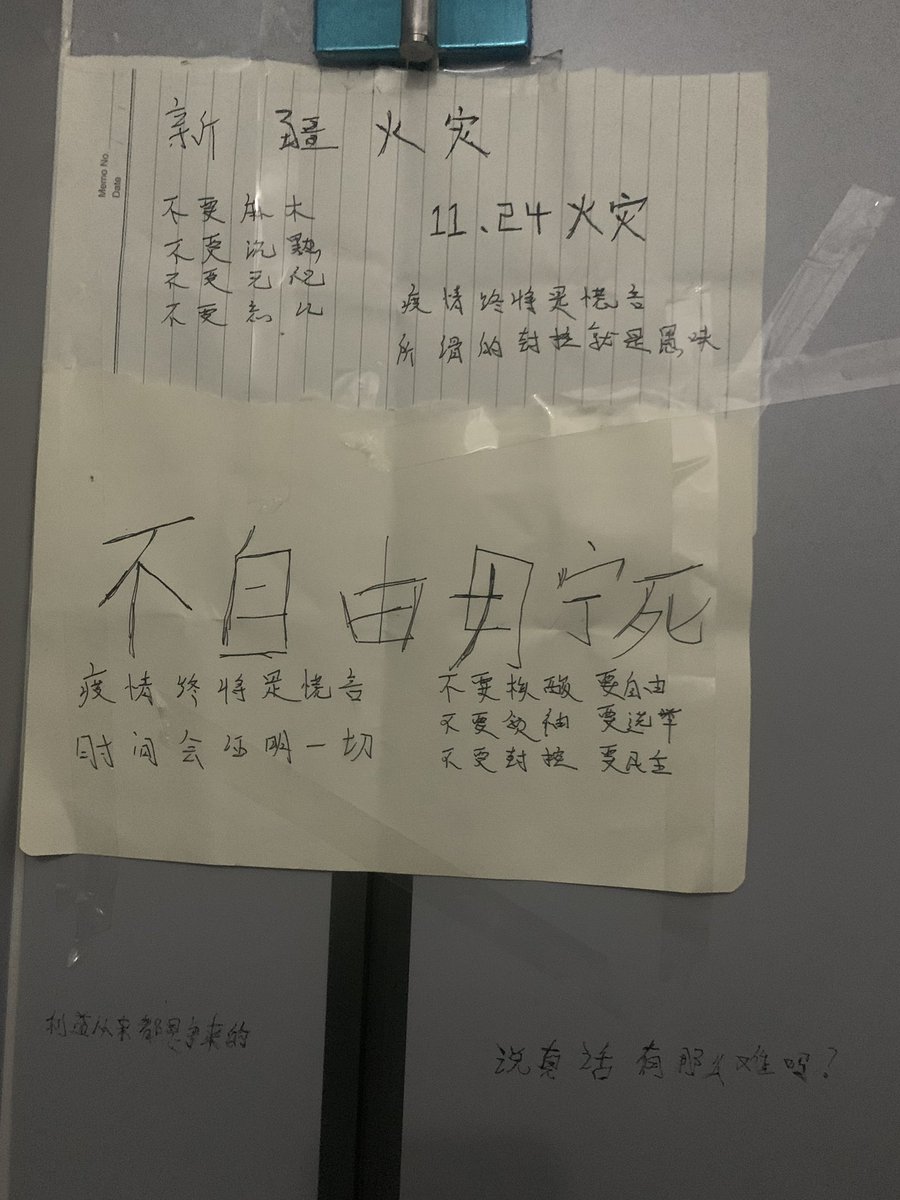 Memo No.
Date
新疆火灾
不要麻木
不要沉默
不要忘记
11.24火灾
疫情终将是谎言
所谓的封控就是愚昧
不自由毋宁死
疫情终将是谎言
时间会证明一切
不要核酸 要自由
不要领袖 要选举
不要封控 要民主
都是争来的
说真话有那么难吗?